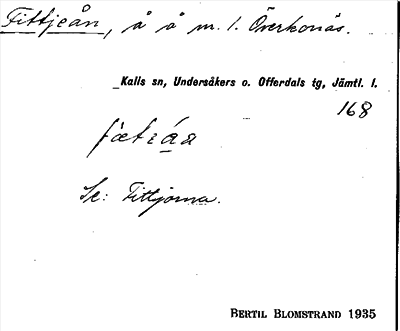 Fittjeån, å å m. l. Överkonäs.
Kalls sn, Undersåkers o. Offerdals tg, Jämtl. l.
168
Se: Fittjorna.
BERTIL BLOMSTRAND 1935